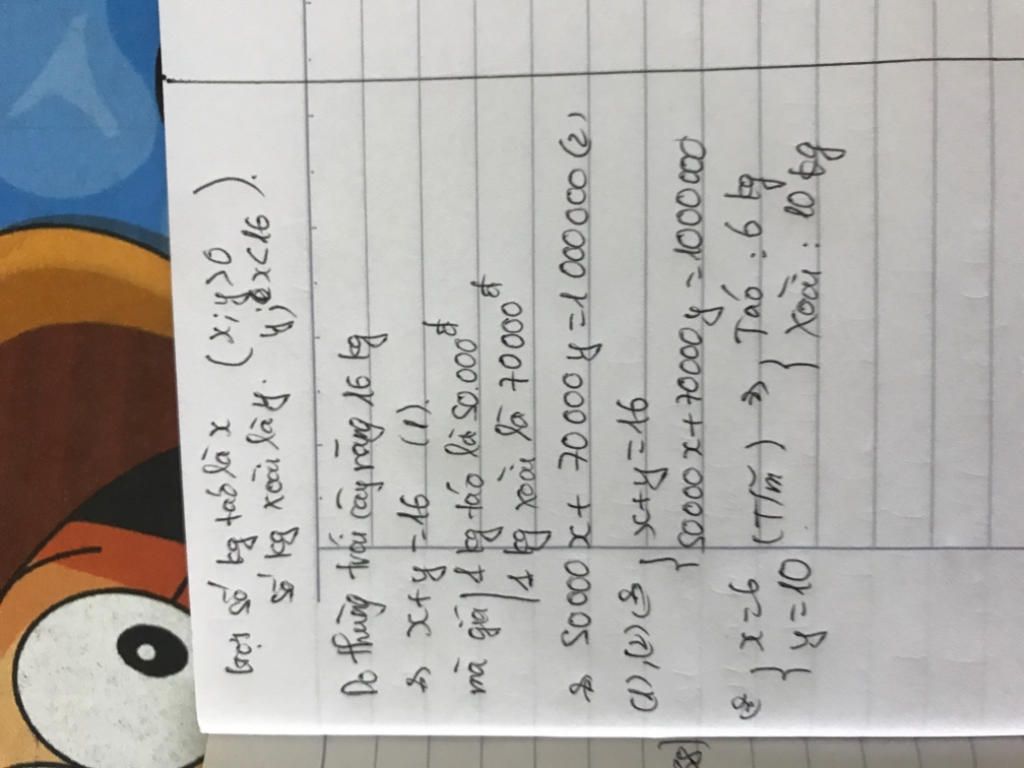 Gọi số kg táo là x (x; y > 0
số kg xoài là y. y; x < 16).
Do thùng trái cây nặng 16 kg
=> x + y = 16 (1).
mà giá { 1 kg táo là 50.000đ
1 kg xoài là 70000đ
=> 50000 x + 70000 y = 1000000 (2)
(1), (2) <=> { x + y = 16
50000 x + 70000 y = 1000000
<=> { x = 6 (Tm) => { Táo : 6 kg
y = 10 Xoài : 10 kg